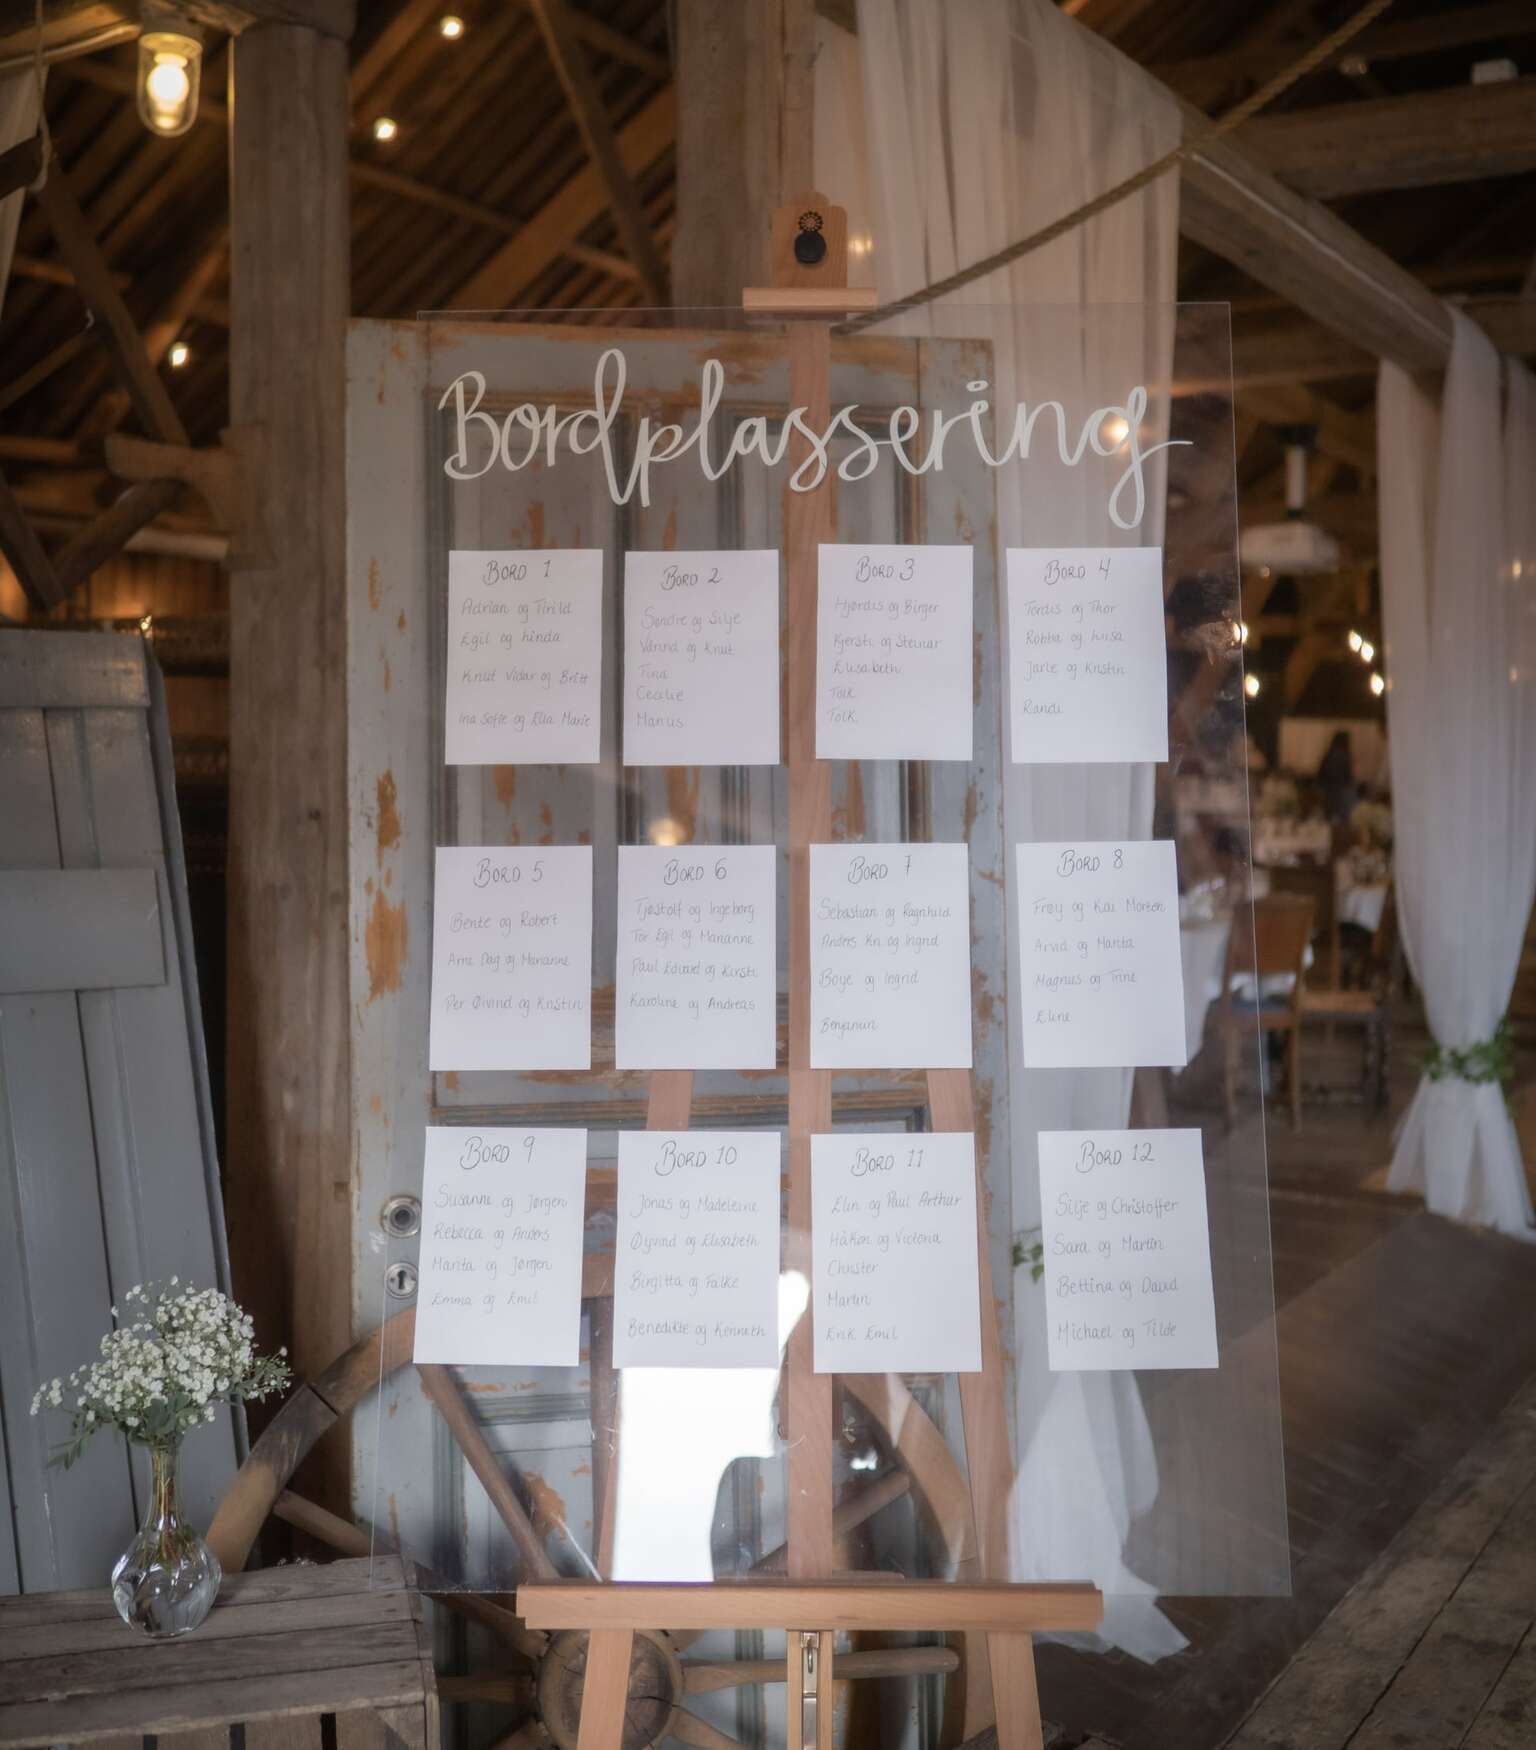 Bordplassering
BORD 1
Adrian og Tirild
Egil og Linda
Knut Vidar og Britt
Ina Sofie og Ella Marie
BORD 2
Søndre og Silje
og Knut
Tina
Cecilie
Marius
BORD 3
Hjørdis og Birger
Kjersti og Steinar
Elisabeth
Tolk
Tolk
BORD 4
Tordis og Thor
Robba og Luisa
Jarle og Kristin
Randi
BORD 5
Bente og Robert
Arne Dag og Marianne
Per Øivind og Kristin
BORD 6
Tjøstolf og Ingeborg
Tor Egil og Marianne
Paul Edvard og Kirsti
Karoline og Andreas
BORD 7
Sebastian og Ragnhild
Andres Kn og Ingrid
Boye og Ingrid
Benjamin
BORD 8
Frøy og Kai Morten
Arvid og Marita
Magnus og Trine
Eline
BORD 9
Susanne og Jørgen
Rebecca og Anders
Marita og Jørgen
Emma og Emil
BORD 10
Jonas og Madeleine
Øyvind og Elisabeth
Birgitta og Falke
Benedikte og Kenneth
BORD 11
Elin og Paul Arthur
Håkon og Victoria
Christer
Martin
Erik Emil
BORD 12
Silje og Christoffer
Sara og Martin
Bettina og David
Michael og Tilde